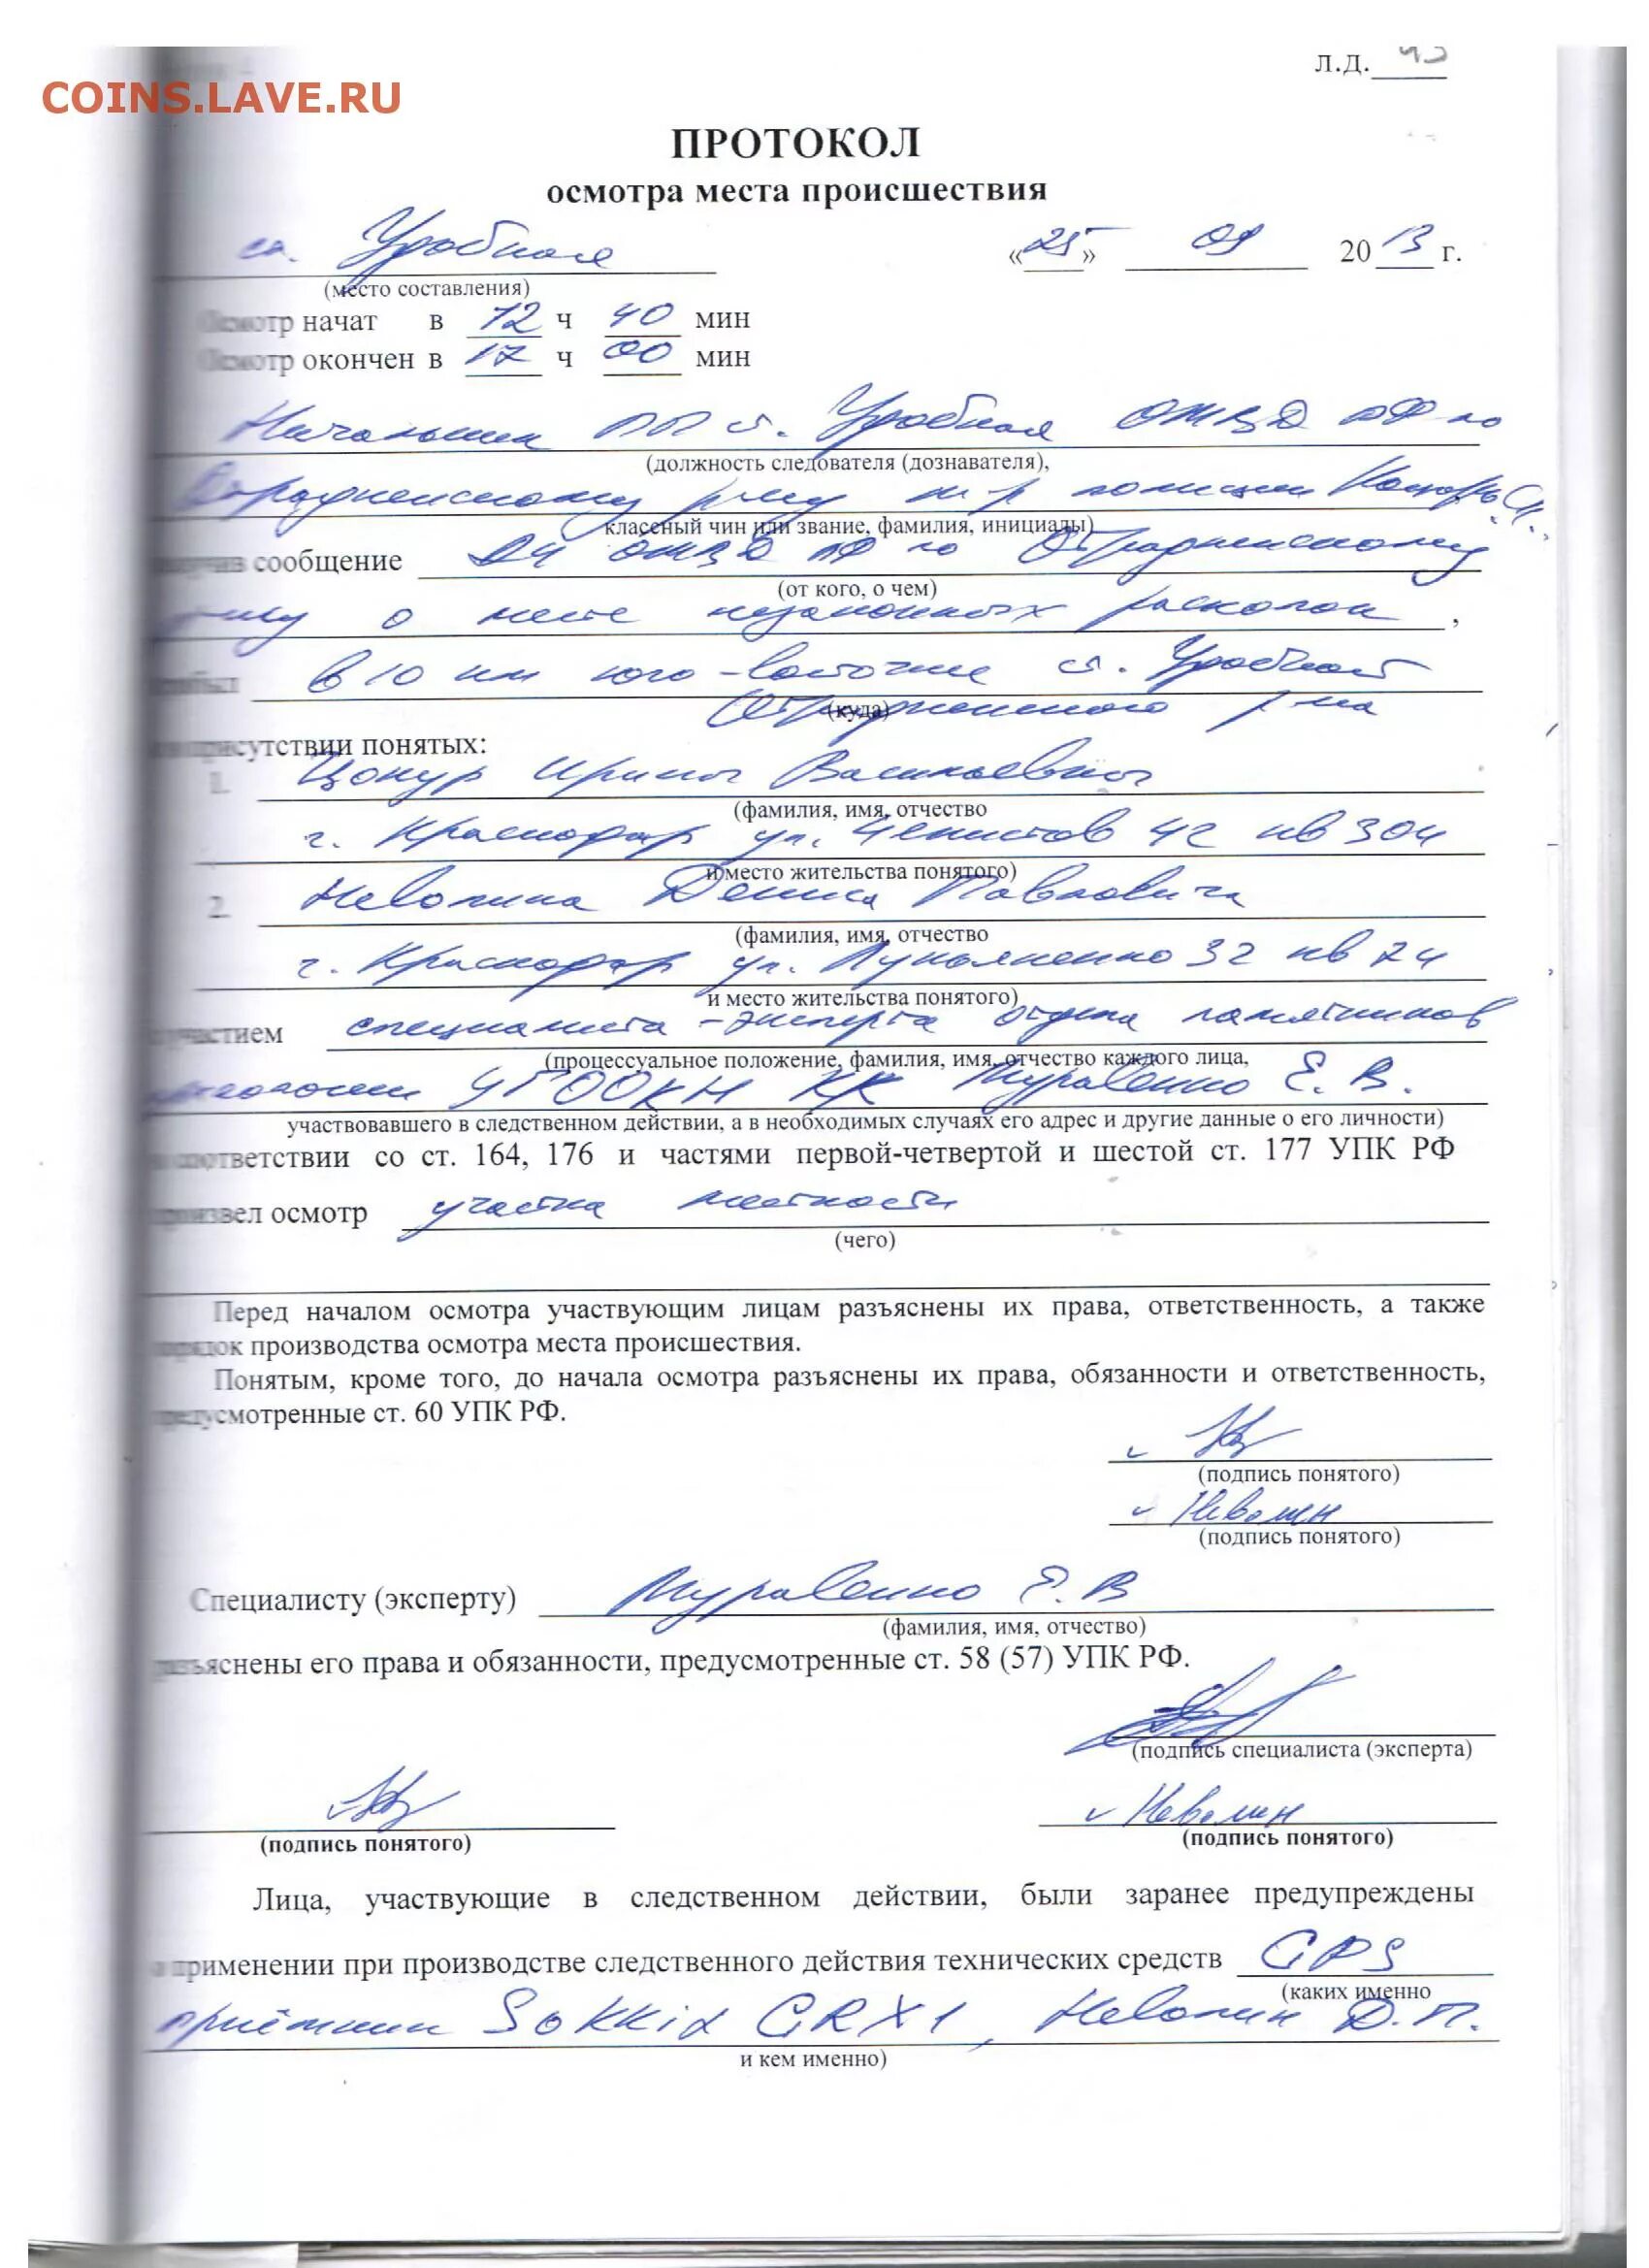 Л.Д.
COINS.LAVE.RU
ПРОТОКОЛ
осмотра места происшествия
ст. Удобная «25» 09 2013 г.
(место составления)
Осмотр начат в 12 ч 40 мин
Осмотр окончен в 17 ч 00 мин
Начальник ПП ст. Удобная ОМВД РФ по
(должность следователя (дознавателя),
Отрадненскому р-ну м-р полиции
классный чин или звание, фамилия, инициалы)
получив сообщение ДЧ ОМВД РФ по Отрадненскому
(от кого, о чем)
р-ну о месте незаконных раскопок,
прибыл в 10 км юго-восточнее ст. Удобной
(куда) Отрадненского р-на
в присутствии понятых:
1. Цокур Ирины Васильевны
(фамилия, имя, отчество
г. Краснодар ул. Чекистов 42 кв 304
и место жительства понятого)
2. Неволина Дениса Павловича
(фамилия, имя, отчество
г. Краснодар ул. Лукьяненко 32 кв 24
и место жительства понятого)
с участием специалиста-эксперта отдела памятников
(процессуальное положение, фамилия, имя, отчество каждого лица,
археологии УГООКН КК Муравенко Е. В.
участвовавшего в следственном действии, а в необходимых случаях его адрес и другие данные о его личности)
в соответствии со ст. 164, 176 и частями первой-четвертой и шестой ст. 177 УПК РФ
произвел осмотр участка местности
(чего)
Перед началом осмотра участвующим лицам разъяснены их права, ответственность, а также
порядок производства осмотра места происшествия.
Понятым, кроме того, до начала осмотра разъяснены их права, обязанности и ответственность,
предусмотренные ст. 60 УПК РФ.
(подпись понятого)
Неволин
(подпись понятого)
Специалисту (эксперту) Муравенко Е. В
(фамилия, имя, отчество)
разъяснены его права и обязанности, предусмотренные ст. 58 (57) УПК РФ.
(подпись специалиста (эксперта)
Неволин
(подпись понятого) (подпись понятого)
Лица, участвующие в следственном действии, были заранее предупреждены
о применении при производстве следственного действия технических средств GPS
(каких именно
приёмник Sokkia GRX1, Неволин Д.П.
и кем именно)